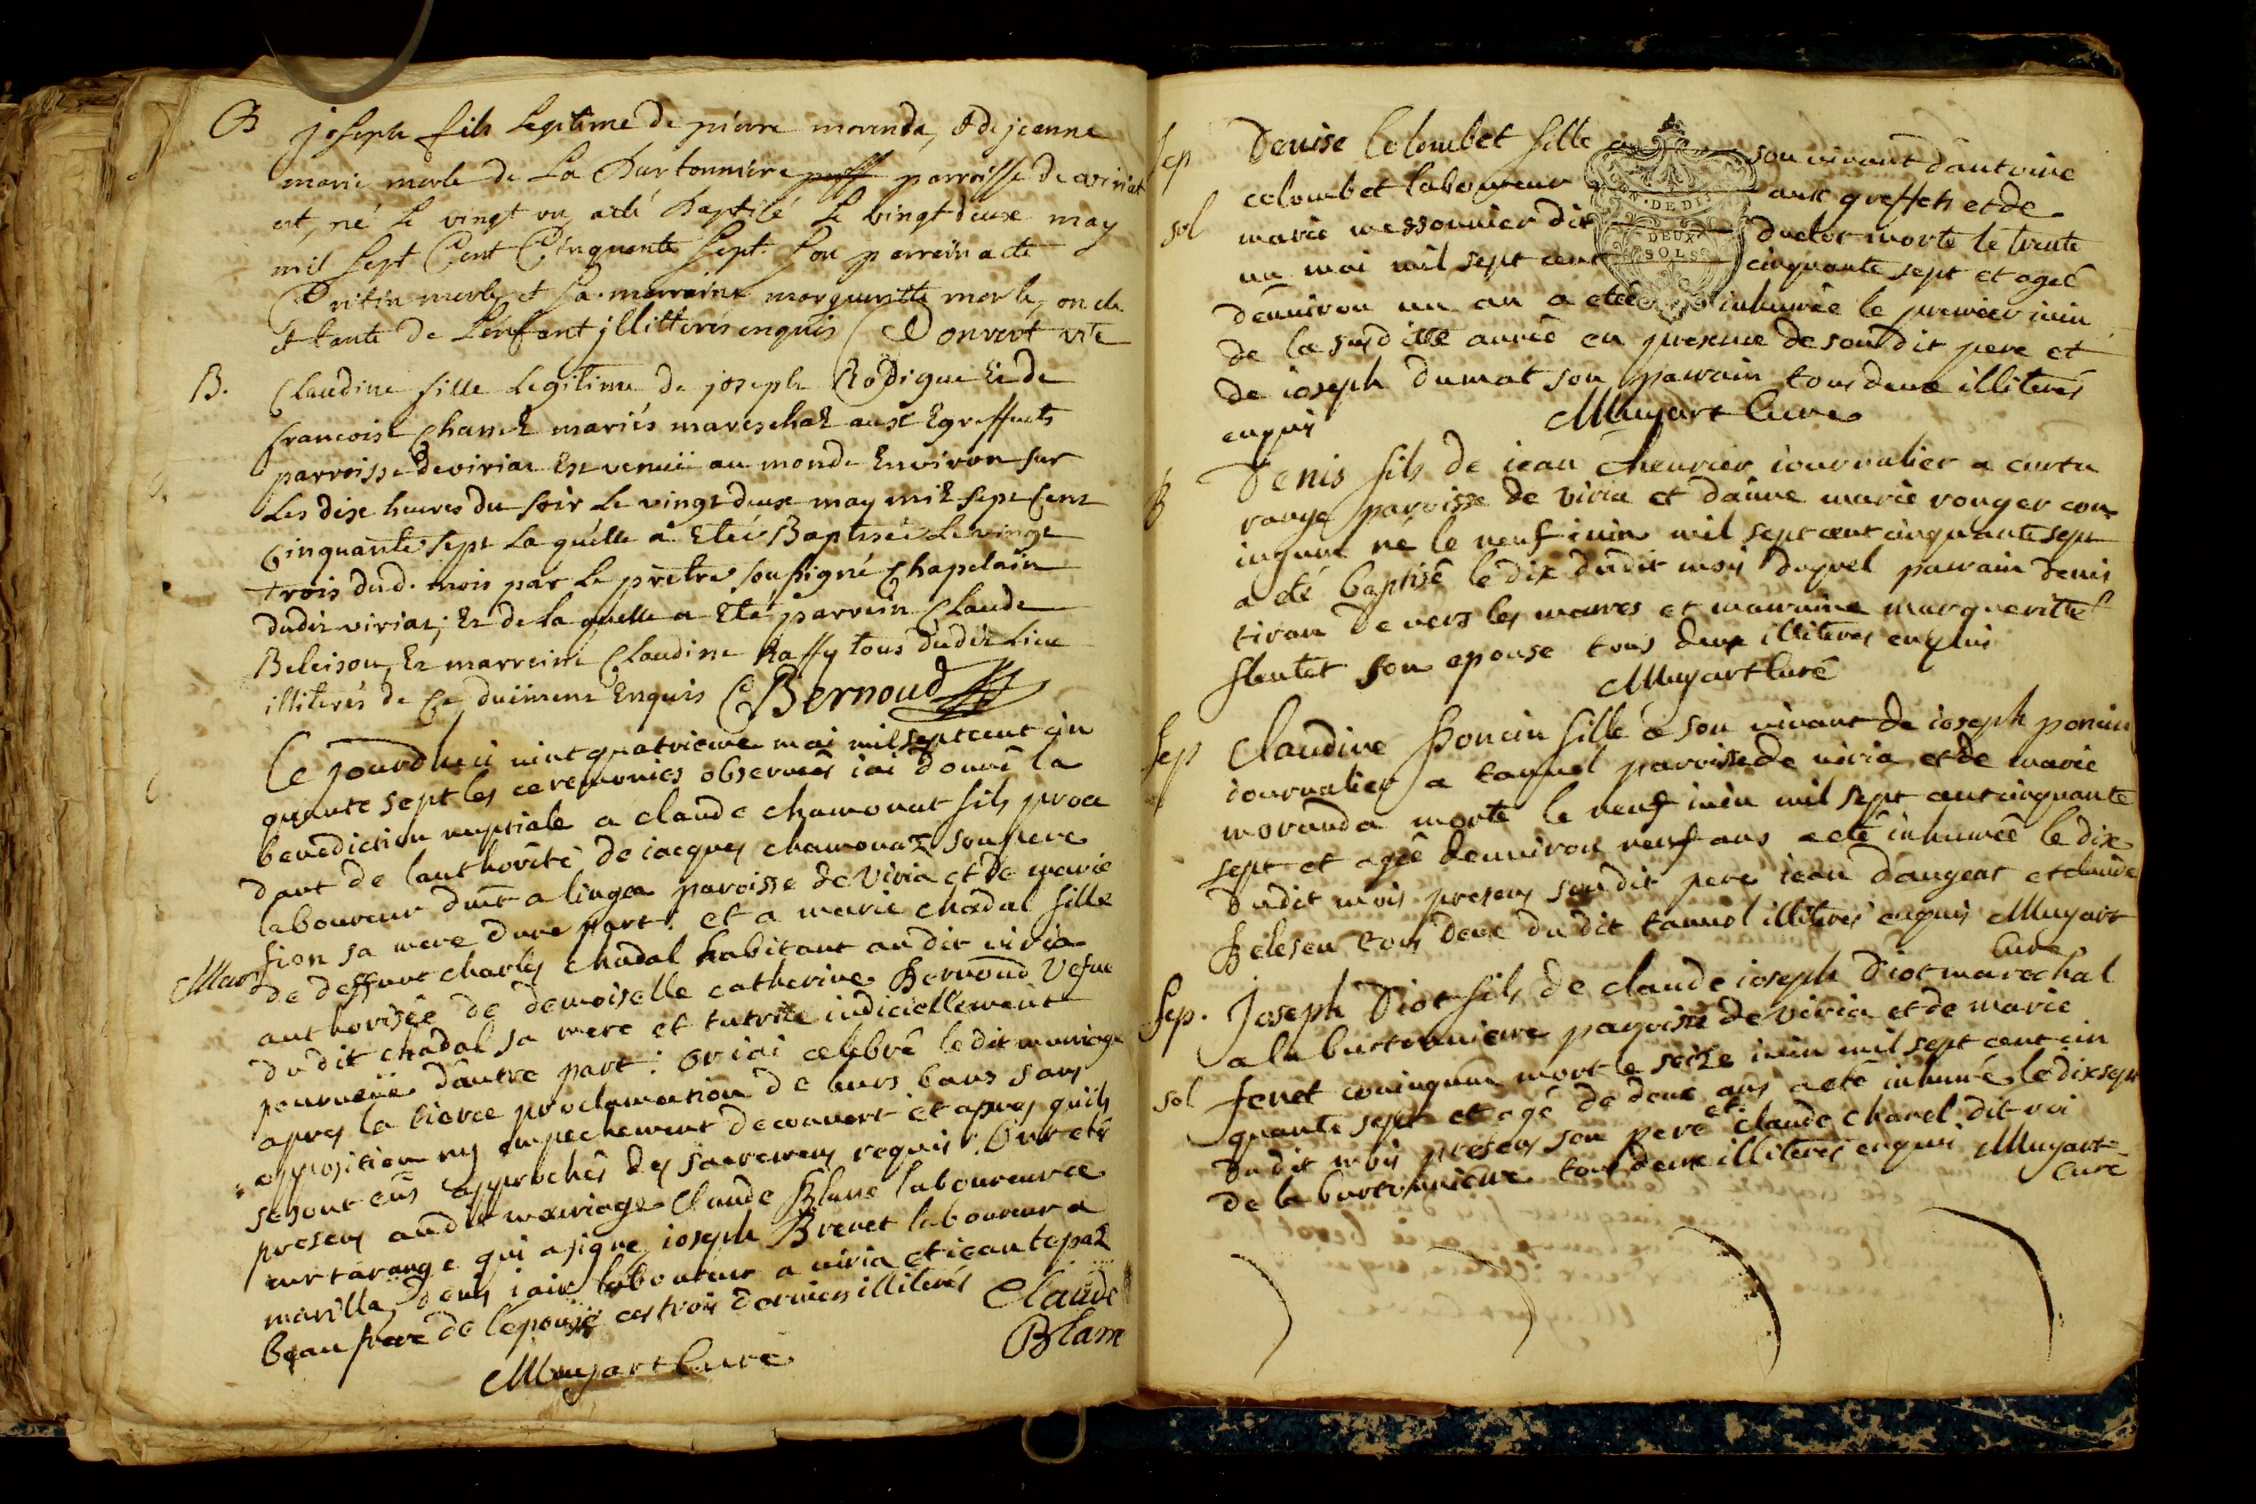 B joseph fils Legitime de pierre moranda, & de jeanne
marie merle de La Burtonniere parroisse de viriat
est, né Le vingt un, a eté Baptisé Le vingt deux may
mil Sept Cent Cinquante Sept. Son parrein a eté
merle, et sa marraine margueritte merle, oncle
& tante de L'enfant jllitterés enquis Convert vic
B. Claudine fille Legitime de joseph Rodigue Et de
francoise Chanel mariés mareschal aux Egreffets
parroisse de viriat Est venuë au monde Environ sur
Les dix heures du soir Le vingt deux may mil sept Cent
Cinquante sept La quelle a Eteé Baptiseé Le vingt
trois dud. mois par Le prêtre soussigné Chapelain
dudit viriat; Et de La quelle a Eté parrein Claude
Beleison, Et marreine Claudine Raffy tous dudit Lieu
illiterés de Ce duëment Enquis Bernoud
Ce jourdhui vint quatrieme mai mil sept cent cin
quante sept les ceremonies observées iai donné la
benediction nuptiale a claude chamonat fils proce
dant de lauthorité de iacques chamonaz son pere
laboureur a linga paroisse de viria et de marie
fion sa mere dune part: et a marie chadal fille
Mar de deffunt charles chadal habitant audit viria
authorisée de demoiselle catherine Bernoud vefue
du dit chadal sa mere et tutrice iudiciellement
pourveüe dautre part: Or iai celebré le dit mariage
apres la tierce proclamation de leurs bans sans
opposition ny empechement decouvert et apres quils
se sont eüs approchés des sacremens requis. Ont eté
presens audit mariage claude Blanc laboureur a
curtarange qui a signe, ioseph Brevet laboureur a
marilla, denis iair laboureur a viria et iean tepaz
beau frere de lepouse ces trois derniers illiterés Claude
Mugart Curé Blam
Sep Denise Colombet fille a son vivant dantoine
colombet laboureur aux greffets et de
sol marie messonnier dit duclor morte le trente
un mai mil sept cent cinquante sept et ageé
denviron un an a eteé inhumée le premier iuin
de la susditte année en presence de son dit pere et
de ioseph dumat son parrain tous deux illiterés
enquis Mugart Curé
B Denis fils de iean chevrier iournalier a curta
range paroisse de viria et danne marie rouger con
ingaux né le neuf iuin mil sept cent cinquante sept
a eté baptisé le dix dudit mois duquel parrain denis
tiran devers les mares et marraine margueritte
flentet son epouse tous deux illiteres enquis
Mugart Curé
Sep Claudine Poncin fille a son vivant de ioseph poncin
iournalier a tannol paroisse de viria et de marie
moranda morte le neuf iuin mil sept cent cinquante
sept et agée denviron neuf ans a eté inhumée le dix
dudit mois presens son dit pere iean dangeat et claude
Belesen tous deux du dit tannol illiteres enquis Mugart
Curé
Sep. Joseph Diot fils de claude ioseph diot marechal
a la burtonniere paroisse de viria et de marie
sol fenet coningaux mort le seize iuin mil sept cent cin
quante sept et agé de deux ans a eté inhumé le dix sept
dudit mois presens son pere et claude charel dit roi
de la burtonniere tous deux illiteres enquis Mugart
Curé
N. DE DI
DEUX
SOLS